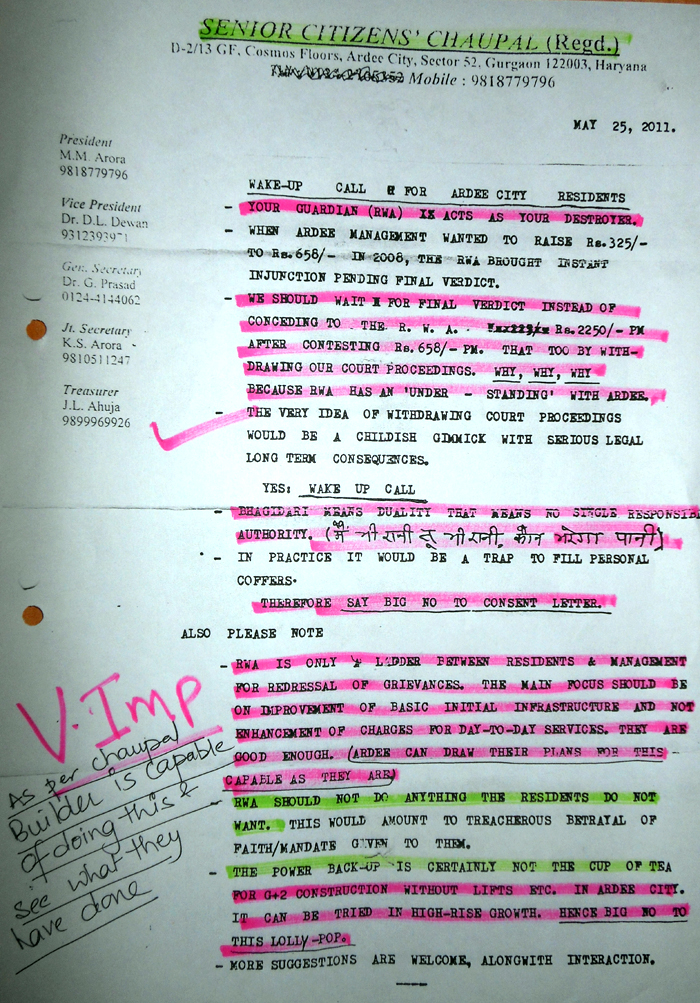 SENIOR CITIZENS' CHAUPAL (Regd.)
D-2/13 GF, Cosmos Floors, Ardee City, Sector 52, Gurgaon 122003, Haryana
Mobile : 9818779796
MAY 25, 2011.
President
M.M. Arora
9818779796
Vice President
Dr. D.L. Dewan
9312393971
Gen. Secretary
Dr. G. Prasad
0124-4144062
Jt. Secretary
K.S. Arora
9810511247
Treasurer
J.L. Ahuja
9899969926
WAKE-UP CALL FOR ARDEE CITY RESIDENTS
- YOUR GUARDIAN (RWA) ACTS AS YOUR DESTROYER.
- WHEN ARDEE MANAGEMENT WANTED TO RAISE Rs.325/-
TO Rs.658/- IN 2008, THE RWA BROUGHT INSTANT
INJUNCTION PENDING FINAL VERDICT.
- WE SHOULD WAIT FOR FINAL VERDICT INSTEAD OF
CONCEDING TO THE R. W. A. Rs.2250/- PM
AFTER CONTESTING Rs.658/- PM. THAT TOO BY WITH-
DRAWING OUR COURT PROCEEDINGS. WHY, WHY, WHY
BECAUSE RWA HAS AN 'UNDER - STANDING' WITH ARDEE.
- THE VERY IDEA OF WITHDRAWING COURT PROCEEDINGS
WOULD BE A CHILDISH GIMMICK WITH SERIOUS LEGAL
LONG TERM CONSEQUENCES.
YES: WAKE UP CALL
- BHAGIDARI MEANS DUALITY THAT MEANS NO SINGLE RESPONSIB
AUTHORITY. (मैं भी रानी तू भी रानी, कौन भरेगा पानी)
- IN PRACTICE IT WOULD BE A TRAP TO FILL PERSONAL
COFFERS.
THEREFORE SAY BIG NO TO CONSENT LETTER.
ALSO PLEASE NOTE
- RWA IS ONLY LADDER BETWEEN RESIDENTS & MANAGEMENT
FOR REDRESSAL OF GRIEVANCES. THE MAIN FOCUS SHOULD BE
ON IMPROVEMENT OF BASIC INITIAL INFRASTRUCTURE AND NOT
ENHANCEMENT OF CHARGES FOR DAY-TO-DAY SERVICES. THEY ARE
GOOD ENOUGH. (ARDEE CAN DRAW THEIR PLANS FOR THIS
CAPABLE AS THEY ARE)
- RWA SHOULD NOT DO ANYTHING THE RESIDENTS DO NOT
WANT. THIS WOULD AMOUNT TO TREACHEROUS BETRAYAL OF
FAITH/MANDATE GIVEN TO THEM.
- THE POWER BACK-UP IS CERTAINLY NOT THE CUP OF TEA
FOR G+2 CONSTRUCTION WITHOUT LIFTS ETC. IN ARDEE CITY.
IT CAN BE TRIED IN HIGH-RISE GROWTH. HENCE BIG NO TO
THIS LOLLY-POP.
- MORE SUGGESTIONS ARE WELCOME, ALONGWITH INTERACTION.
V. Imp
As per chaupal
Builder is capable
of doing this &
see what they
have done